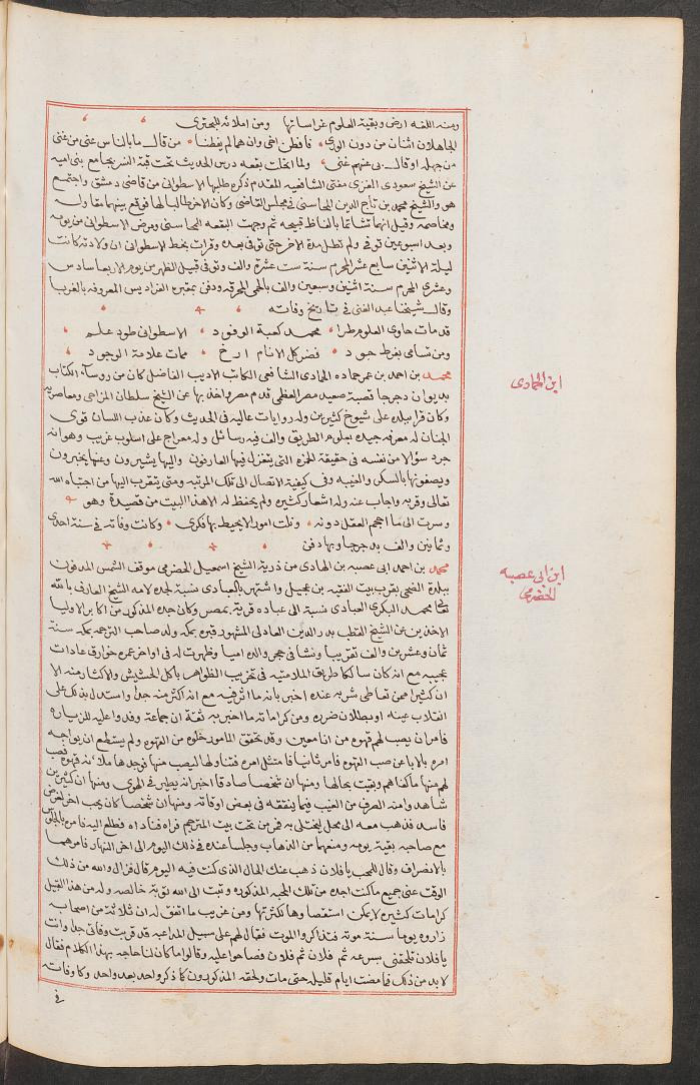 ومنه اللغه ارض وبقية العلوم غراساتها ومن املائه للبحترى
الجاهلان اثنان من دون الورى فافطن اخى وان همالم يفطنا من قال مابالناس عنى من غنى
من جهله اوقال بى عنهم غنى ولما انحلت بقعه درس الحديث تحت قبة النسر بجامع بنى اميه
عن الشيخ سعودى الغزى مفتى الشافعيه المقدم ذكره طلبها الاسطوانى من قاضى دمشق واجتمع
هو والشيخ محمد بن تاج الدين المحاسنى فى مجلس القاضى وكان الاخر طالبا لها فوقع بينهما مقاوله
ومخاصمه وقيل انهما تشاتما بالفاظ قبيحه ثم وجهت البقعه للمحاسنى ومرض الاسطوانى من يومه
وبعد اسبوعين توفى ولم تطل مدة الاخر حتى توفى بعده وقرات بخط الاسطوانى ان ولادته كانت
ليلة الاثنين سابع عشر المحرم سنة ست عشرة والف وتوفى قبيل الظهر من يوم الاربعا سادس
وعشرى المحرم سنة اثنين وسبعين والف بالحمى المحرقه ودفن بمقبرة الفراديس المعروفه بالغربا
وقال شيخنا عبد الغنى فى تاريخ وفاته
قد مات حاوى العلوم طرا محمد كعبة الوفود الاسطوانى طود علم
ومن تسامى بفرط جود فضر كل الانام ارخ ممات علامة الوجود
محمد بن احمد بن عمر حماده الحمادى الشافعى الكاتب الاديب الفاضل كان من روسآء الكتاب
بديوان دجرجا قصبة صعيد مصر العظمى قدم مصر واخذ بها عن الشيخ سلطان المزاحى ومعاصريه
وكان قرا ببلده على شيوخ كثيرين وله روايات عاليه فى الحديث وكان عذب اللسان قوى
الجنان له معرفه جيده بعلوم الطريق والف فيه رسائل وله معراج على اسلوب غريب وهو انه
جرد سؤالا من نفسه فى حقيقة الخمرة التى يتغزل فيها العارفون واليها يشيرون وعنها يخبرون
ويصفونها بالسكر والغيبه وفى كيفية الاتصال الى تلك المرتبه ومتى يتقرب اليها من اجتباه الله
تعالى وقربه واجاب عنه وله اشعار كثيره ولم يحفظ له الا هذا البيت من قصيدة وهو
وسرت الى ما احجم العقل دونه ونلت امورا لا يحيط بها فكرى وكانت وفاته فى سنة احدى
وثمانين والف بدجرجا وبها دفن
محمد بن احمد ابى عصبه بن الهادى من ذرية الشيخ اسمعيل الحضرمى موقف الشمس المدفون
ببلدة الضحى بقرب بيت الفقيه بن عجيل واشتهر بالعبادى نسبة لجده لامه الشيخ العارف بالله
محمد البكرى العبادى نسبة الى عباده قرية بمصر وكان جده المذكور من اكابر الاوليا
الاخذين عن الشيخ القطب بدر الدين العادلى المشهور قبره بمكه ولد صاحب الترجمه بمكه سنة
ثمان وعشرين والف تقريبا ونشا فى حجر والده اميا وظهرت له فى اواخر عمره خوارق عادات
عجيبه مع انه كان سالكا طريق الملامتيه فى تخريب الظواهر باكل الحشيش والاكثار منه الا
ان كثيرا ممن تعاطى شربه عنده اخبر بانه ما اثر فيه مع انه اكثر منه جدا واستدل بذلك على
انقلاب عينه او بطلان ضرره ومن كراماته ما اخبر به ثقة ان جماعة وفدوا عليه للزياره
فامر ان يصب لهم قهوه من انا معين وقد تحقق المامور خلوه من القهوه ولم يستطع ان يواجه
امره بالابا عن صب القهوه فامر ثانيا فامتثل امره فتناولها ليصب منها فوجدها ملآنة قهوه فصب
لهم منها ما كفاهم وبقيت بحالها ومنها ان شخصا صادقا اخبر انه يطير فى الهوى ومنها ان كثيرين
شاهدوا منه الصرف من الغيب فيما ينفقه فى بعض اوقاته ومنها ان شخصا كان يحب اخر لغرض
فاسد فذهب معه الى محل ليختلى به فمر من تحت بيت المترجم فراه فناداه فطلع اليه فامره بالجلوس
مع صاحبه بقية يومه ومنعهما من الذهاب وجلسا عنده فى ذلك اليوم الى اخر النهار فامرهما
بالانصراف وقال للمحب يا فلان ذهب عنك الحال الذى كنت فيه اليوم قال فزال والله من ذلك
الوقت عنى جميع ما كنت اجده من تلك المحبه المذكوره وتبت الى الله توبة خالصه وله من هذا القبيل
كرامات كثيره لا يمكن استقصاوها لكثرتها ومن غريب ما اتفق له ان ثلاثة من اصحابه
زاروه يوما سنة موته فتذاكروا الموت فقال لهم على سبيل المداعبه قد قربت وفاتى جدا وانت
يا فلان تلحقنى بسرعه ثم فلان ثم فلان فصاحوا عليه وقالوا ما كان لنا حاجه بهذا الكلام فقال
لا بد من ذلك فما مضت ايام قليله حتى مات ولحقه المذكورون كما ذكر واحد بعد واحد وكا وفاته
فى
ابن الحمادى
ابن ابى عصبه
الحضرمى